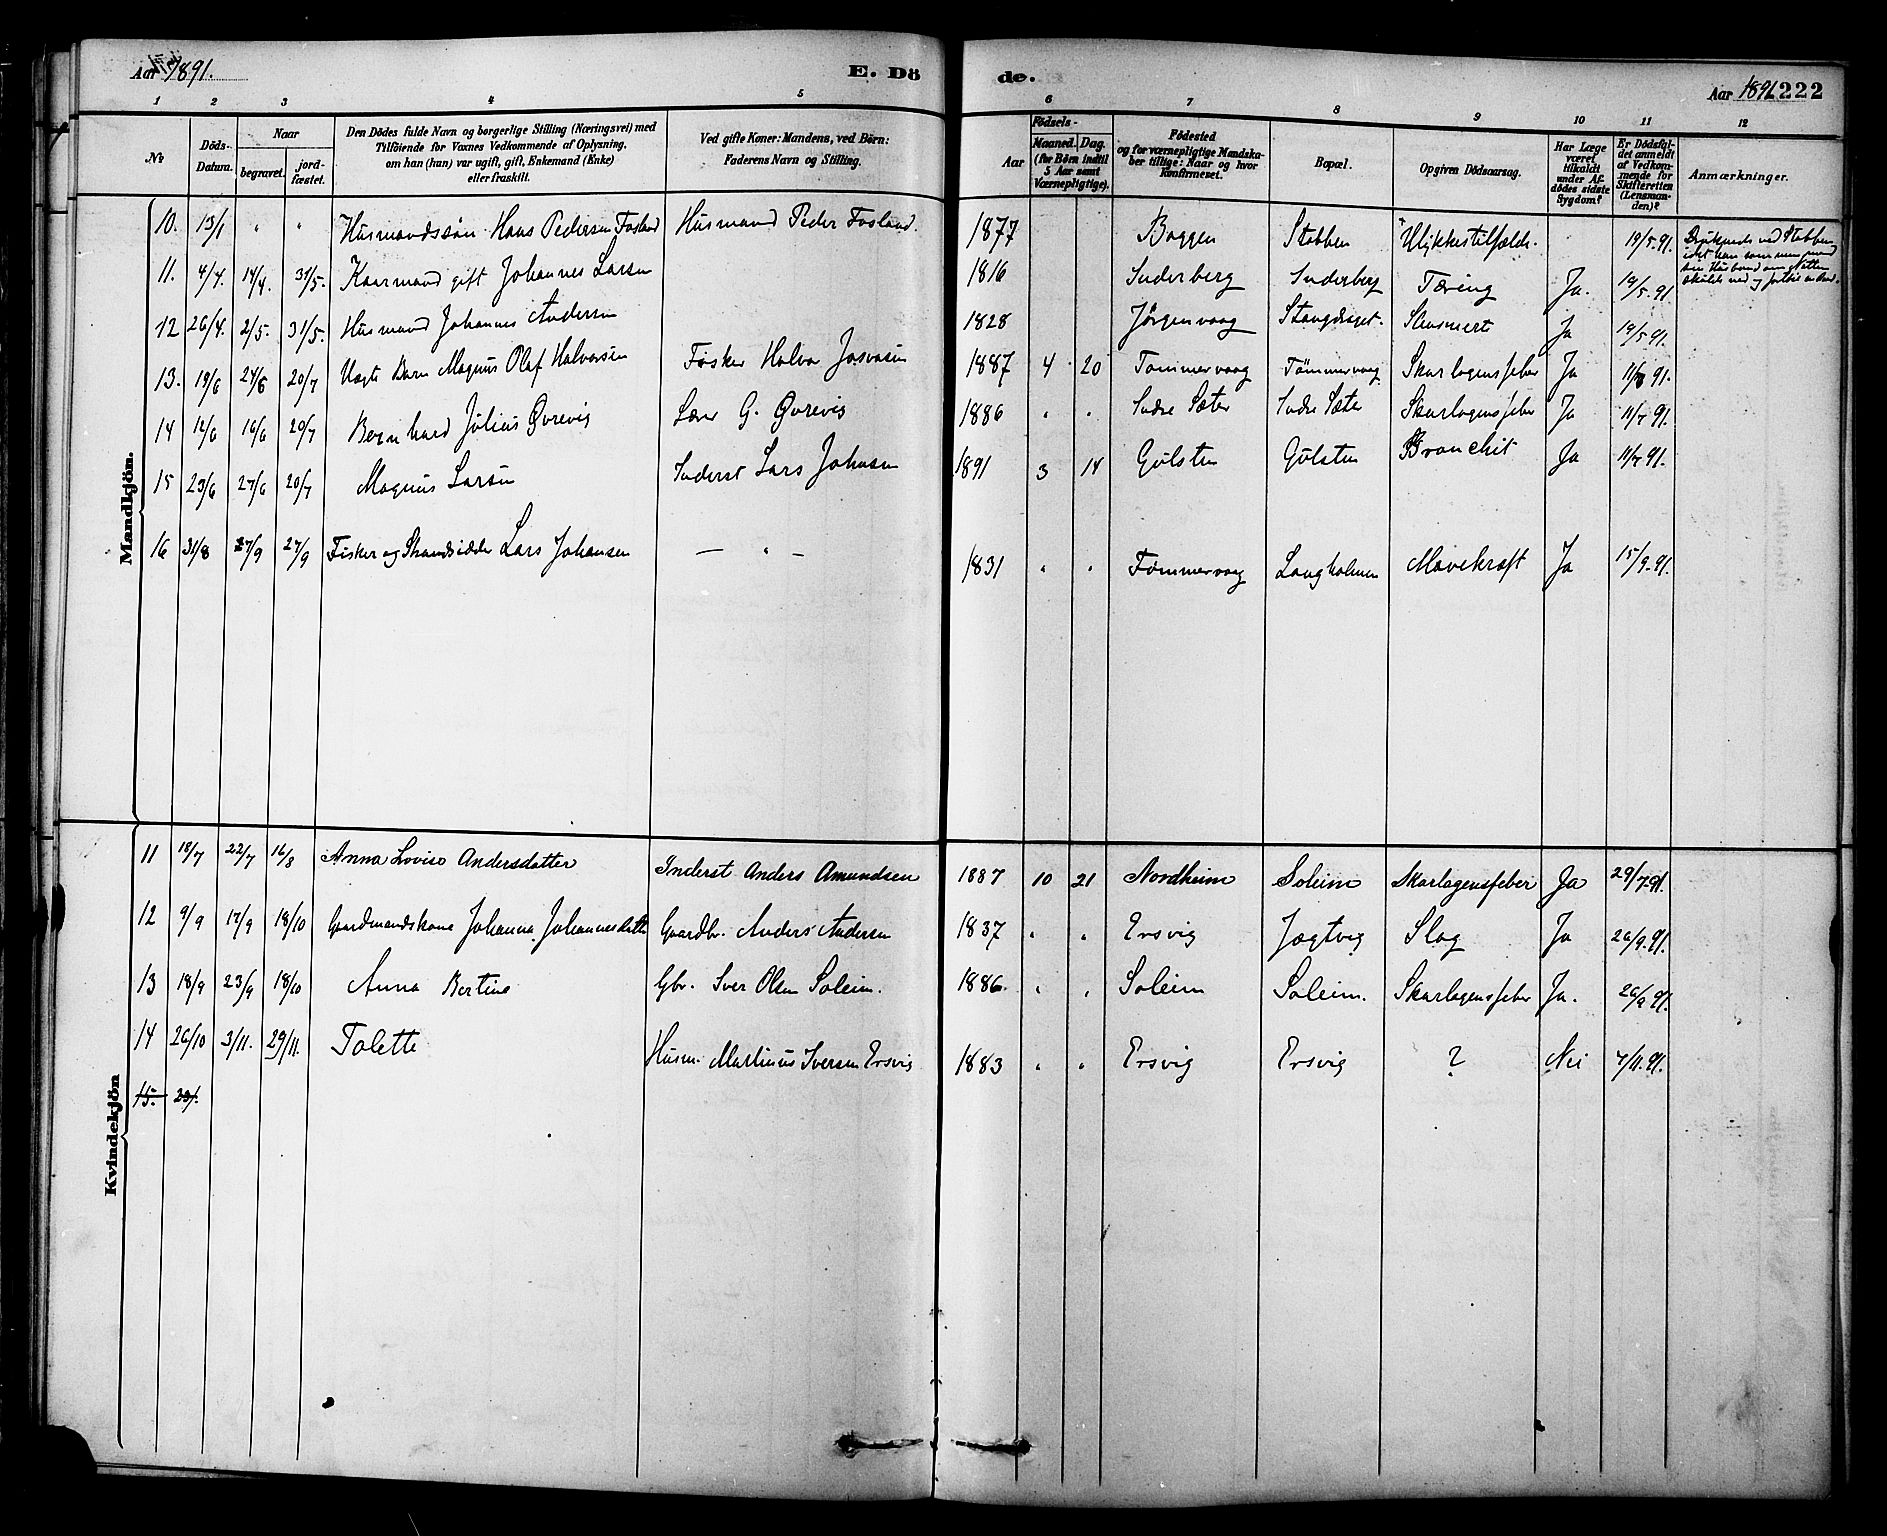 Aar 1891. E. Dö de. Aar 1891. 222
1 2 3 4 5 6 7 8 9 10 11 12
No
Döds-Datum.
Naar
begravet.
jord-fæstet.
Den Dödes fulde Navn og borgerlige Stilling (Næringsvei) med
Tilföiende for Voxnes Vedkommende af Oplysning,
om han (hun) var ugift, gift, Enkemand (Enke)
eller fraskilt.
Ved gifte Koner: Mandens, ved Börn:
Faderens Navn og Stilling.
Födsels-
Aar
Maaned. Dag.
(for Börn indtil
5 Aar samt
Værnepligtige).
Födested
og for værnepligtige Mandska-
ber tillige: Naar og hvor
konfirmeret.
Bopæl.
Opgiven Dödsaarsag.
Har Læge
været
tilkaldt
under Af-
dödes sidste
Sygdom?
Er Dödsfal-
det anmeldt
af Vedkom-
mende for
Skifteretten
(Lensman-
den)?
Anmærkninger.
Mandkjön.
10. 13/1 " " Husmandssøn Hans Pedersen Fosland Husmand Peder Fosland. 1877 Baggen Stabben Ulykkestilfælde. 19/5.91.
11. 4/4. 14/4. 31/5. Kaarmand gift Johannes Larsen 1816 Inderberg Inderberg Tæring Ja. 19/5.91.
12 26/4. 2/5. 31/5. Husmand Johannes Andersen 1828 Jørgenvaag Ja 19/5.91.
13. 19/6 24/6 20/7 Uægte Barn Magnus Olaf Halvorsen Fisker Halvor 1887 4 20 Tømmervaag Tømmervaag Skarlagensfeber Ja 11/7 91.
14 12/6 16/6 20/7 Bernhard Julius Qvrevig Lærer G. Qvrevig 1886 " " Indre Sæter Indre Sæter Skarlagensfeber Ja 11/7 91.
15 23/6 27/6 20/7 Magnus Larsen Inderst Lars Johnsen 1891 3 14 Gulsten Gulsten Bronchit Ja 11/7 91.
16 31/8 27/9 27/9 Fisker og Strandsidder Lars Johansen — " — 1831 " " Tømmervaag Langholmen Mavekræft Ja 15/9.91.
Kvindekjön
11 18/7 22/7 16/8 Anna Lovise Andersdatter Inderst Anders Amundsen 1887 10 21 Nordheim Soleim Skarlagensfeber Ja 29/7.91.
12 9/9 17/9 18/10 Gaardmandskone Johanna Johannesdatter Gaardbr. Anders Andersen 1837 " " Ersvig Jægtvig Slag Ja 26/9.91.
13 18/9 23/9 18/10 Anna Bertine Gbr. Iver Olsen Soleim. 1886. " " Soleim Soleim. Skarlagensfeber Ja. 26/9 91.
14 26/10 3/11. 29/11. Tolette Husm. Martinus Iversen Ersvig 1883 " " Ersvig Ersvig ? Nei 7/11.91.
15. 23/.